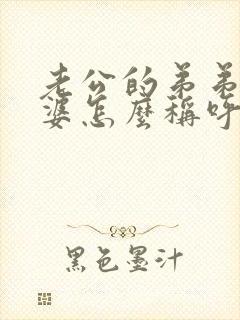 老公的弟弟
婆怎麼稱呼
黑色墨汁